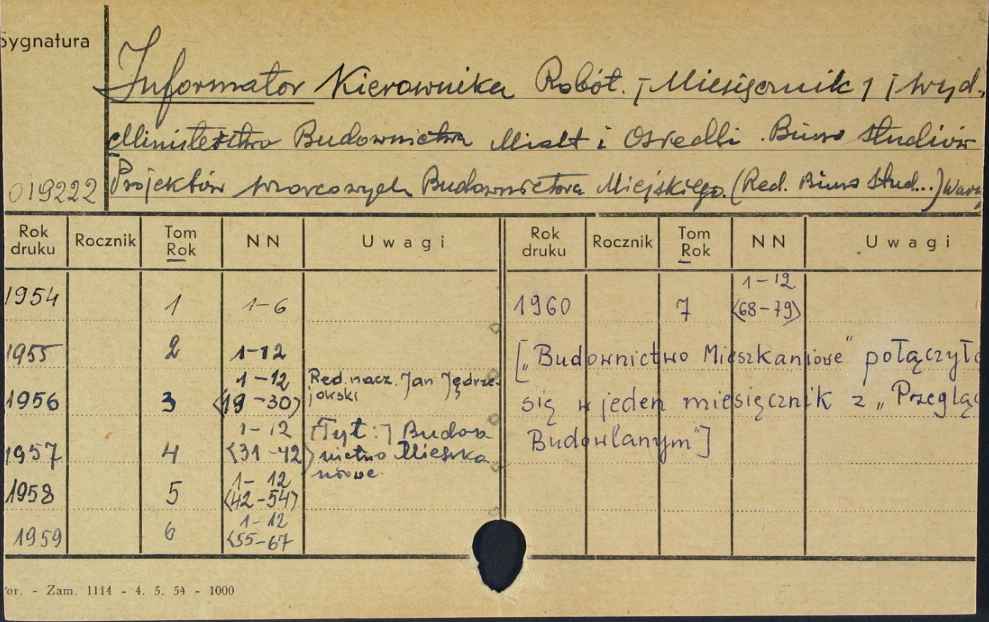 Sygnatura
Informator Kierownika Robót. [Miesięcznik] [Wyd.
Ministerstwo Budownictwa Miast i Osiedli. Biuro Studiów
019222 Projektów wzorcowych Budownictwa Miejskiego. (Red. Biuro Stud...) Warsz
Rok druku Rocznik Tom Rok NN Uwagi Rok druku Rocznik Tom Rok NN Uwagi
1954 1 1-6 1960 7 1-12 <68-79>
1955 2 1-12
1956 3 1-12 <19-30> Red. nacz. Jan Jędrzejowski
1957 4 1-12 <31-42> [Tyt:] Budownictwo Mieszkaniowe
1958 5 1-12 <42-54>
1959 6 1-12 <55-67
["Budownictwo Mieszkaniowe" połączyło
się w jeden miesięcznik z "Przegląd
Budowlanym"]
or. - Zam. 1114 - 4. 5. 54 - 1000